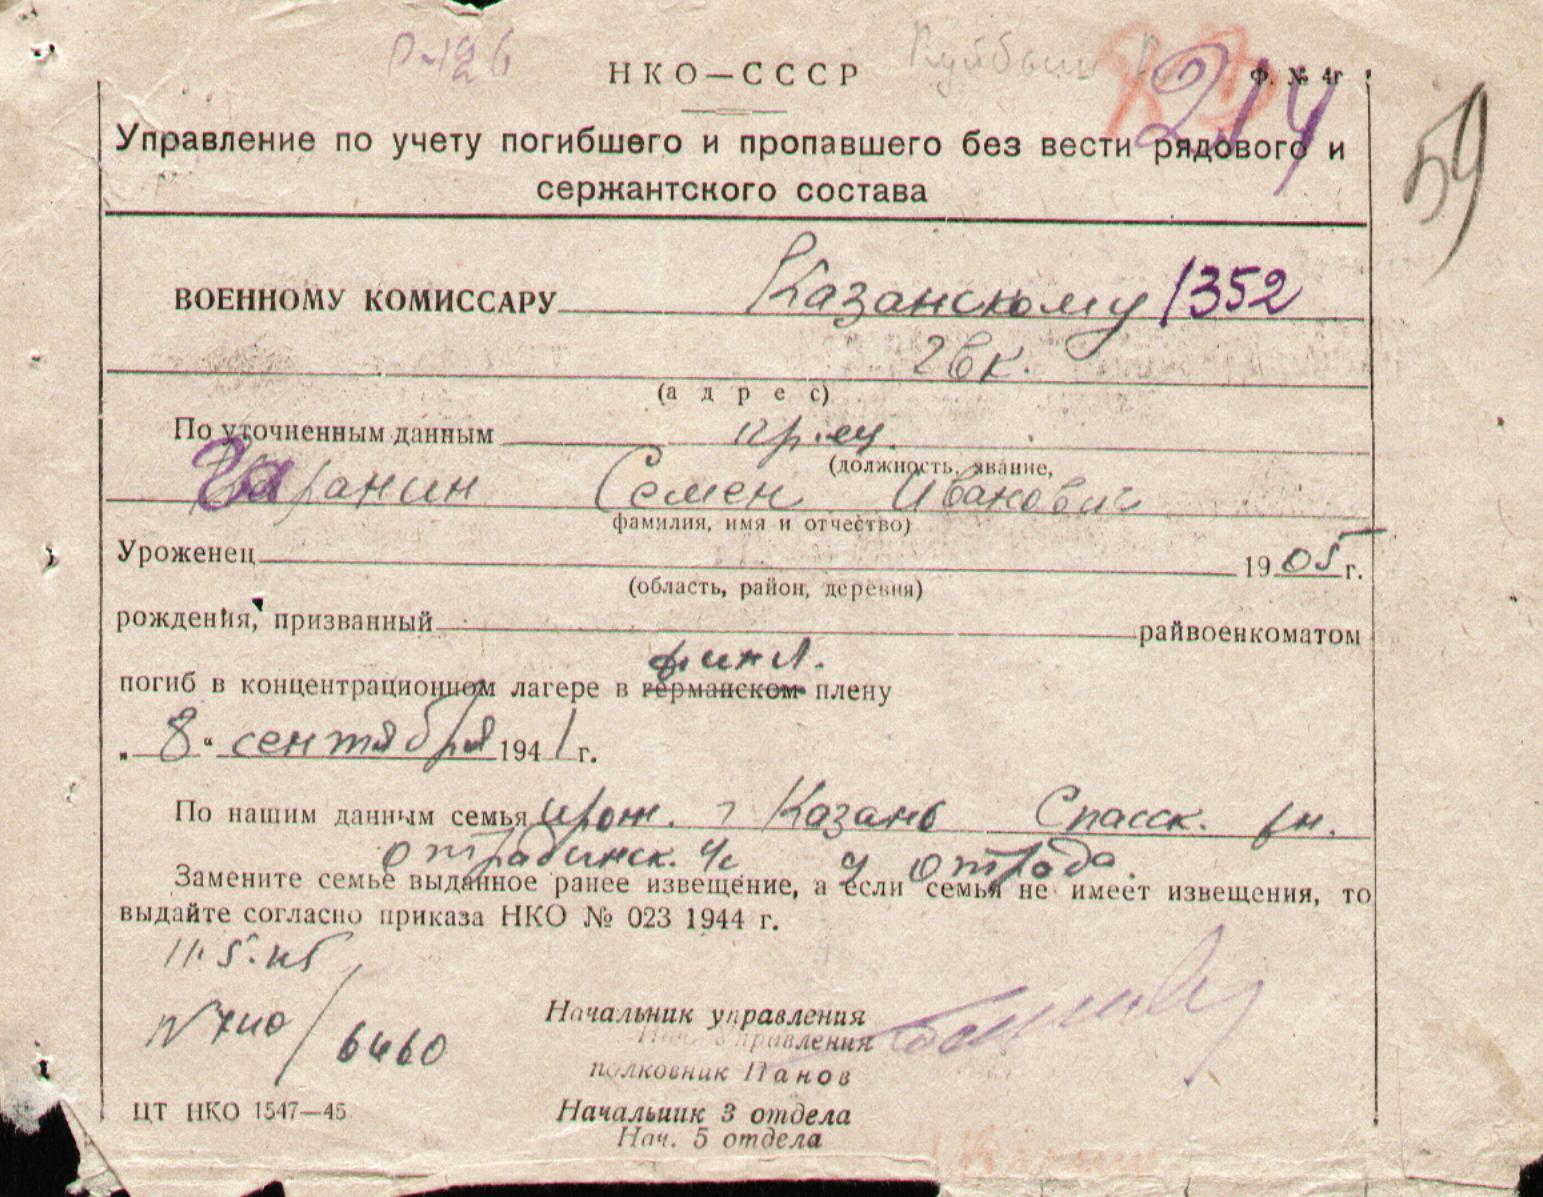 Р-126
НКО—СССР
Куйбыш
Ф. № 4г
214
59
Управление по учету погибшего и пропавшего без вести рядового и
сержантского состава
ВОЕННОМУ КОМИССАРУ Казанскому 1352
гвк.
(адрес)
По уточненным данным кр-ец.
(должность, звание,
Гаранин Семен Иванович
фамилия, имя и отчество)
Уроженец 1905 г.
(область, район, деревня)
рождения, призванный райвоенкоматом
финл.
погиб в концентрационном лагере в германском плену
„8“ сентября 1941 г.
По нашим данным семья прож. г Казань Спасск. рн.
Отрадинск. с/с Отрада.
Замените семье выданное ранее извещение, а если семья не имеет извещения, то
выдайте согласно приказа НКО № 023 1944 г.
11.5.45
№ 7110/6460
Начальник управления
Нач. Управления
полковник Панов
ЦТ НКО 1547—45
Начальник 3 отдела
Нач. 5 отдела